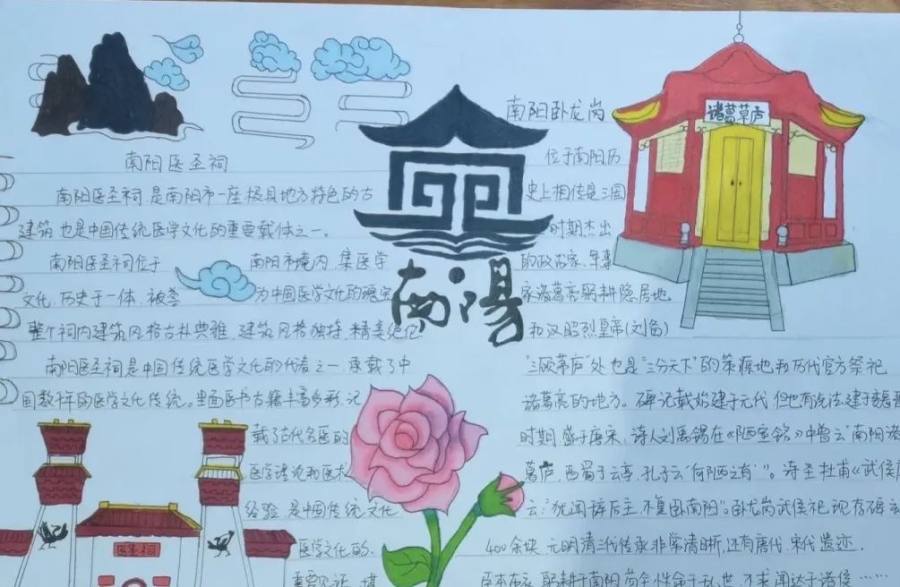 南阳医圣祠
南阳医圣祠是南阳市一座极具地方特色的古
建筑也是中国传统医学文化的重要载体之一。
南阳医圣祠位于南阳市境内,集医学
文化,历史于一体,被誉为中国医学文化的瑰宝
整个祠内建筑风格古朴典雅,建筑风格独特,精美绝伦
南阳医圣祠是中国传统医学文化的代表之一,承载了中
国数千年的医学文化传统。里面医书古籍丰富多彩,记
载了古代名医的
医学理论和医术
经验,是中国传统文化
医学文化的
重要见证,堪
医圣祠
南陽
诸葛草庐
南阳卧龙岗
位于南阳历
史上相传是三国
时期杰出
的政治家,军事
家诸葛亮躬耕隐居地。
和汉昭烈皇帝(刘备)
"三顾茅庐"处也是"三分天下"的策源地和历代官方祭祀
诸葛亮的地方。碑记载始建于元代但也有说法建于魏晋
时期,盛于唐宋,诗人刘禹锡在《陋室铭》中曾云"南阳诸
葛庐,西蜀子云亭,孔子云'何陋之有'"。诗圣杜甫《武侯庙》
云:"犹闻辞后主,不复卧南阳"。卧龙岗武侯祠,现存碑
400余块,元明清三代传承非常清晰,还有唐代,宋代遗迹.
臣本布衣,躬耕于南阳,苟全性命于乱世,不求闻达于诸侯……